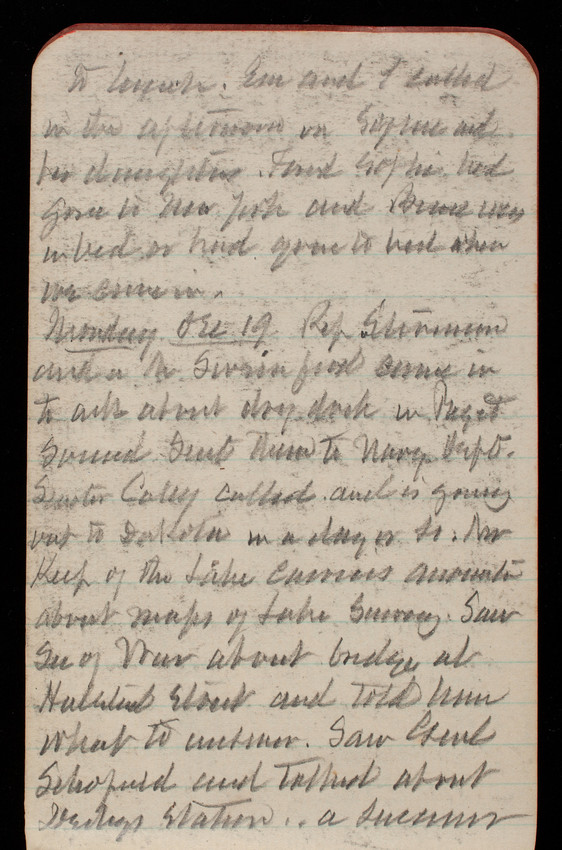 to lunch. Em and I called
in the afternoon on Sophie and
her daughters. Found Sophie had
gone to New York and was
in bed or had gone to bed when
we came in.
Monday Dec 19 Rep Stevenson
and a Mr come in
to ask about dry dock in Puget
Sound. Sent them to Navy Dept.
called and is going
out to Dakota in a day or so. Mr
Keep of the Lake Carriers
about maps of Lake Survey. Saw
Sec of War about bridge at
Halsted Street and told him
what to answer. Saw Genl
Schofield and talked about
Station .. a